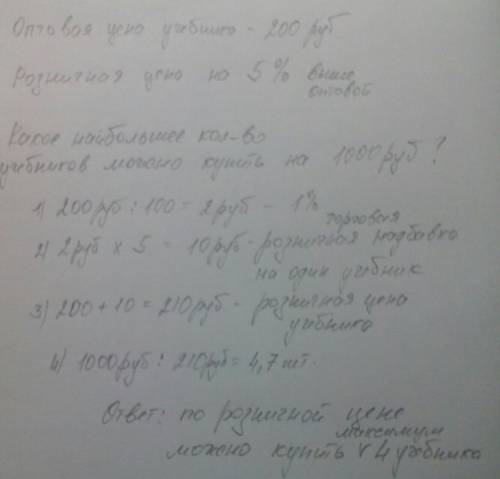 Оптовая цена учебника - 200 руб
Розничная цена на 5% выше
оптовой
Какое наибольшее кол-во
учебников можно купить на 1000 руб?
1) 200 руб : 100 = 2 руб - 1%
торговая
2) 2 руб х 5 = 10 руб - розничная надбавка
на один учебник
3) 200 + 10 = 210 руб - розничная цена
учебника
4) 1000 руб : 210 руб = 4,7 шт.
Ответ: по розничной цене
максимум
можно купить v 4 учебника